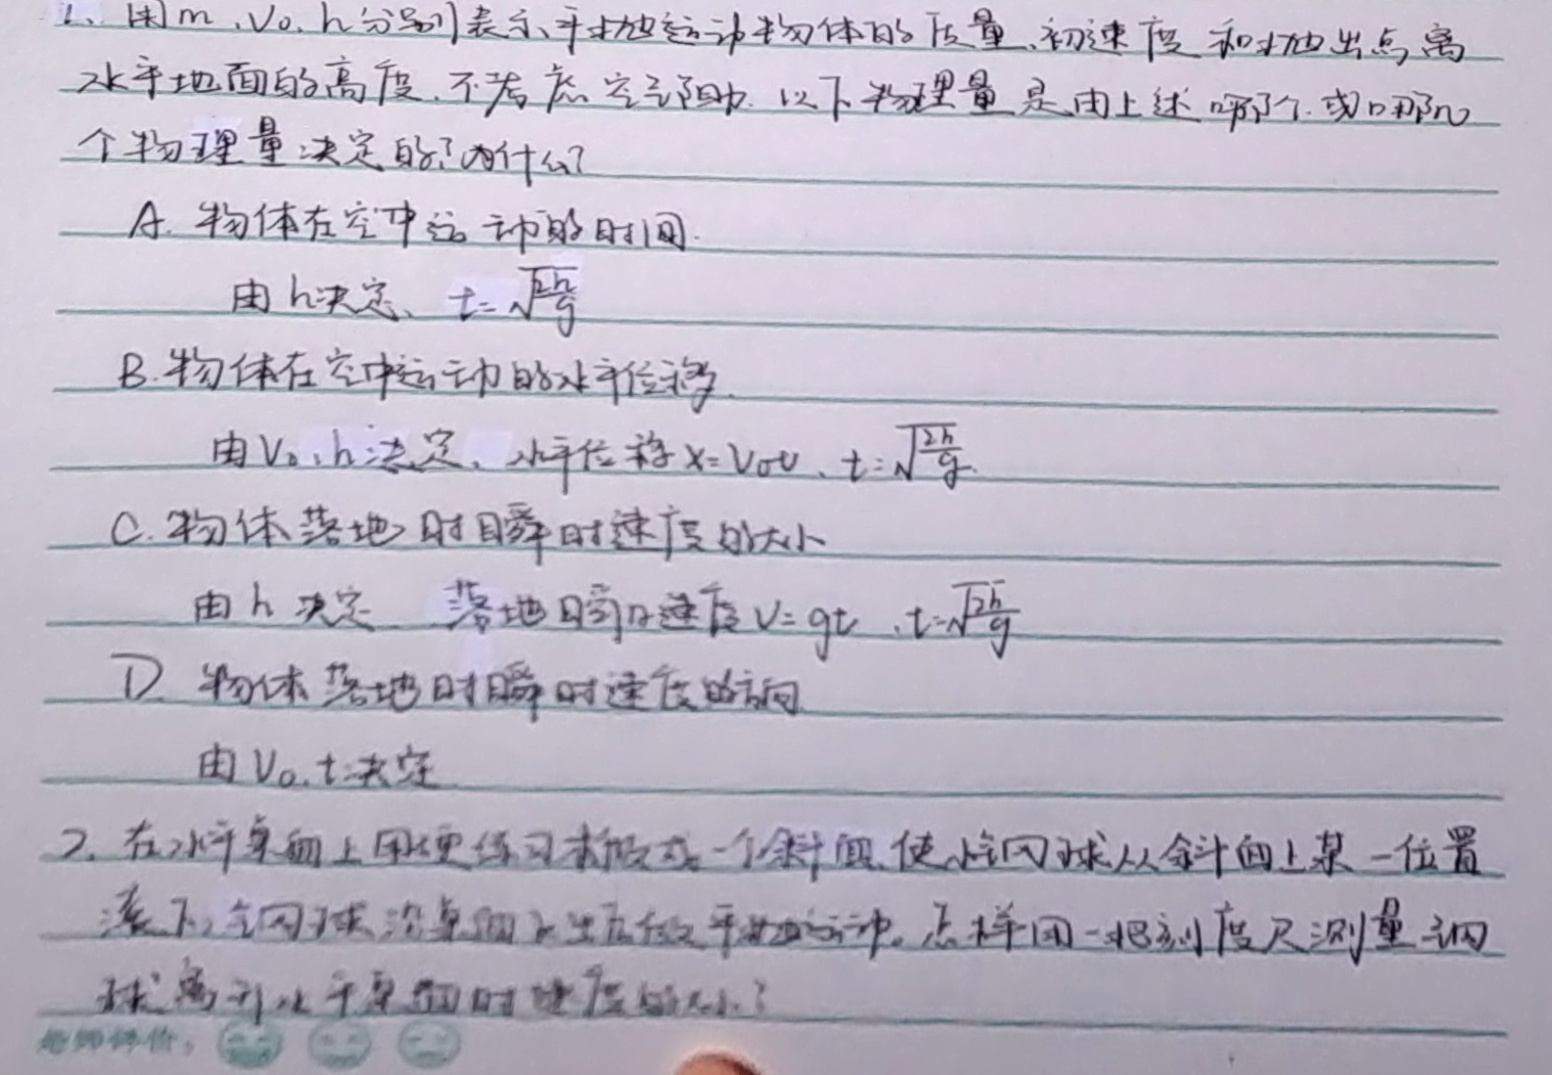 1. 用m、V₀、h分别表示平抛运动物体的质量、初速度和抛出点离
水平地面的高度.不考虑空气阻力.以下物理量是由上述哪个.或哪几
个物理量决定的?为什么?
A. 物体在空中运动的时间.
由h决定、 t=√(2h/g)
B.物体在空中运动的水平位移.
由V₀、h决定、水平位移x=V₀t、t=√(2h/g).
C.物体落地时瞬时速度的大小
由h决定 落地瞬时速度V=gt、t=√(2h/g)
D 物体落地时瞬时速度的方向
由V₀.t决定
2. 在水平桌面上用硬练习本做成一个斜面.使小钢球从斜面上某一位置
滚下,钢球沿桌面飞出后做平抛运动。怎样用一把刻度尺测量钢
球离开水平桌面时速度的大小?
老师评价: